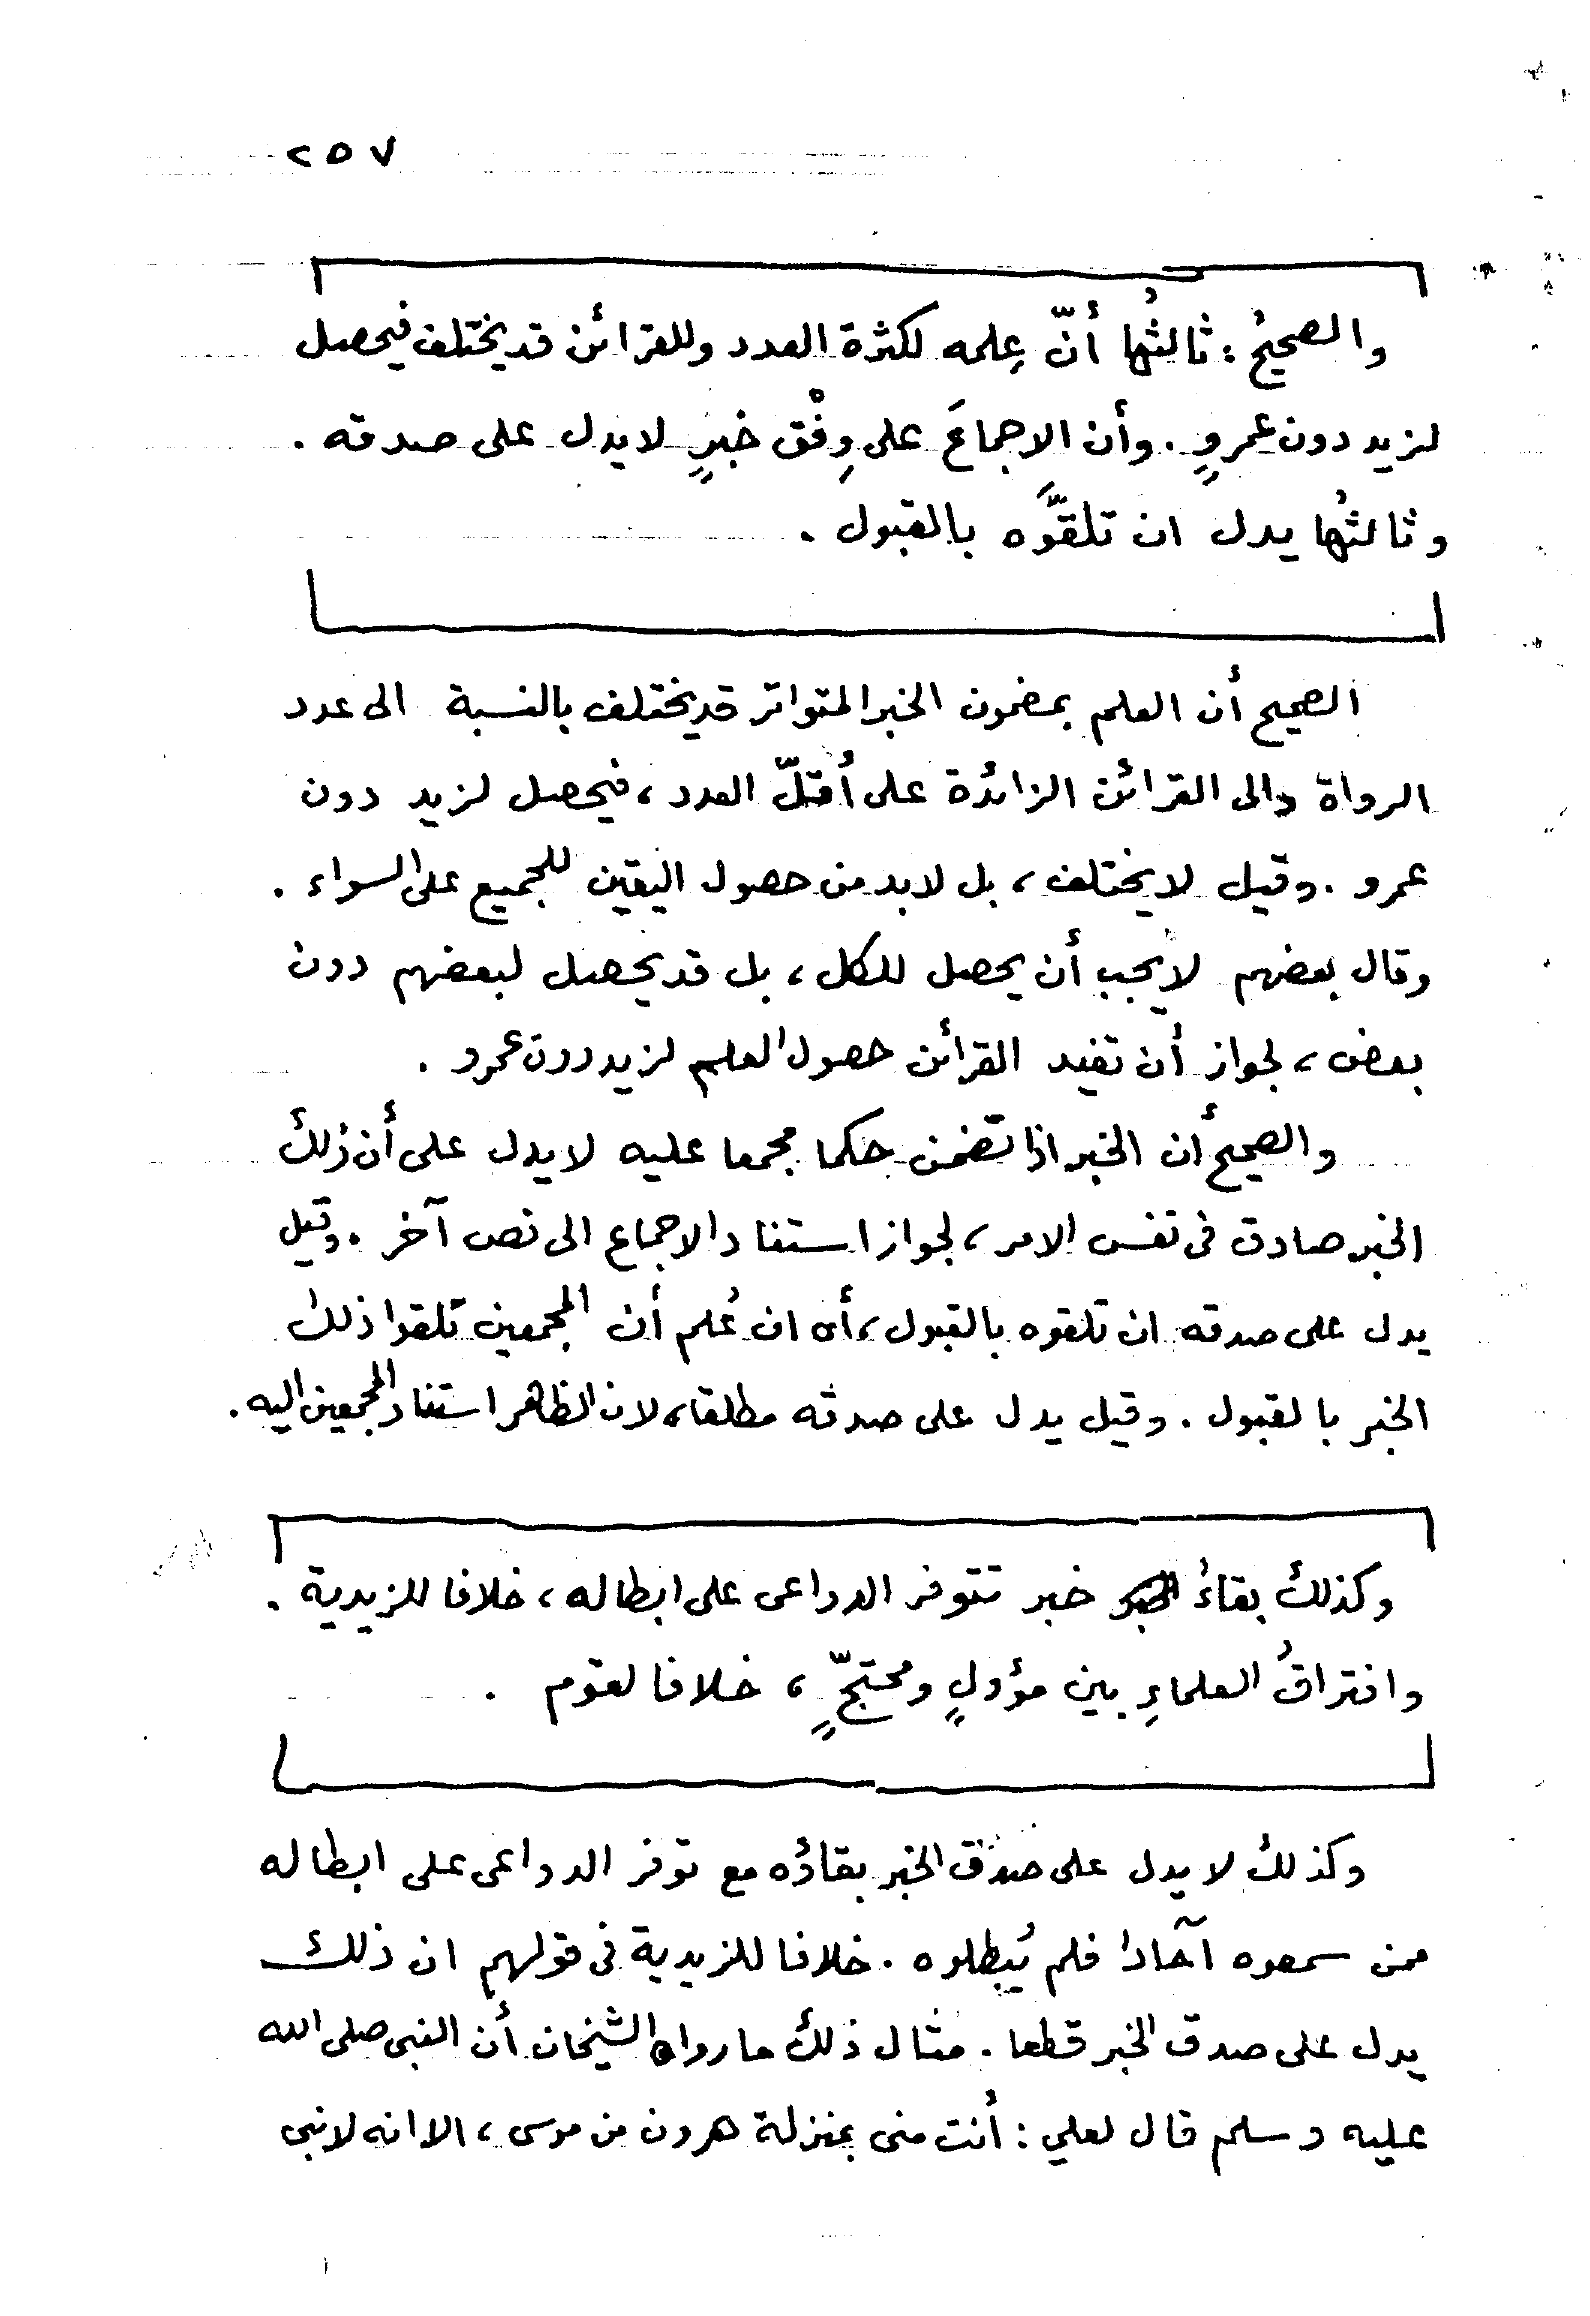 ٢٥٧
والصحيحُ : ثالثُها أنّ عِلمه لكثرة العدد وللقرائن قد يختلف فيحصل
لزيد دون عمروٍ . وأن الاجماعَ على وِفْق خبرٍ لا يدل على صدقه .
وثالثُها يدل ان تلقَّوه بالقبول .
الصحيح أن العلم بمضمون الخبر المتواتر قد يختلف بالنسبة الى عدد
الرواة والى القرائن الزائدة على أقلّ العدد ، فيحصل لزيد دون
عمرو . وقيل لا يختلف ، بل لا بد من حصول اليقين للجميع على السواء .
وقال بعضهم لا يجب أن يحصل للكل ، بل قد يحصل لبعضهم دون
بعض ، لجواز أن تفيد القرائن حصول العلم لزيد دون عمرو .
والصحيح أن الخبر اذا تضمن حكما مجمعا عليه لا يدل على أن ذلك
الخبر صادق فى نفس الامر ، لجواز استناد الاجماع الى نص آخر . وقيل
يدل على صدقه ان تلقوه بالقبول ، أى ان عُلم أن المجمعين تلقوا ذلك
الخبر بالقبول . وقيل يدل على صدقه مطلقا ، لان الظاهر استناد المجمعين اليه .
وكذلك بقاءُ خبر تتوفر الدواعى على ابطاله ، خلافا للزيدية .
وافتراقُ العلماءِ بين مؤولٍ ومحتجٍّ ، خلافا لقوم .
وكذلك لا يدل على صدق الخبر بقاؤه مع توفر الدواعى على ابطاله
ممن سمعوه آحادا فلم يُبطلوه . خلافا للزيدية فى قولهم ان ذلك
يدل على صدق الخبر قطعا . مثال ذلك ما رواه الشيخان أن النبى صلى الله
عليه وسلم قال لعلي : أنت منى بمنزلة هرون من موسى ، الا انه لا نبى